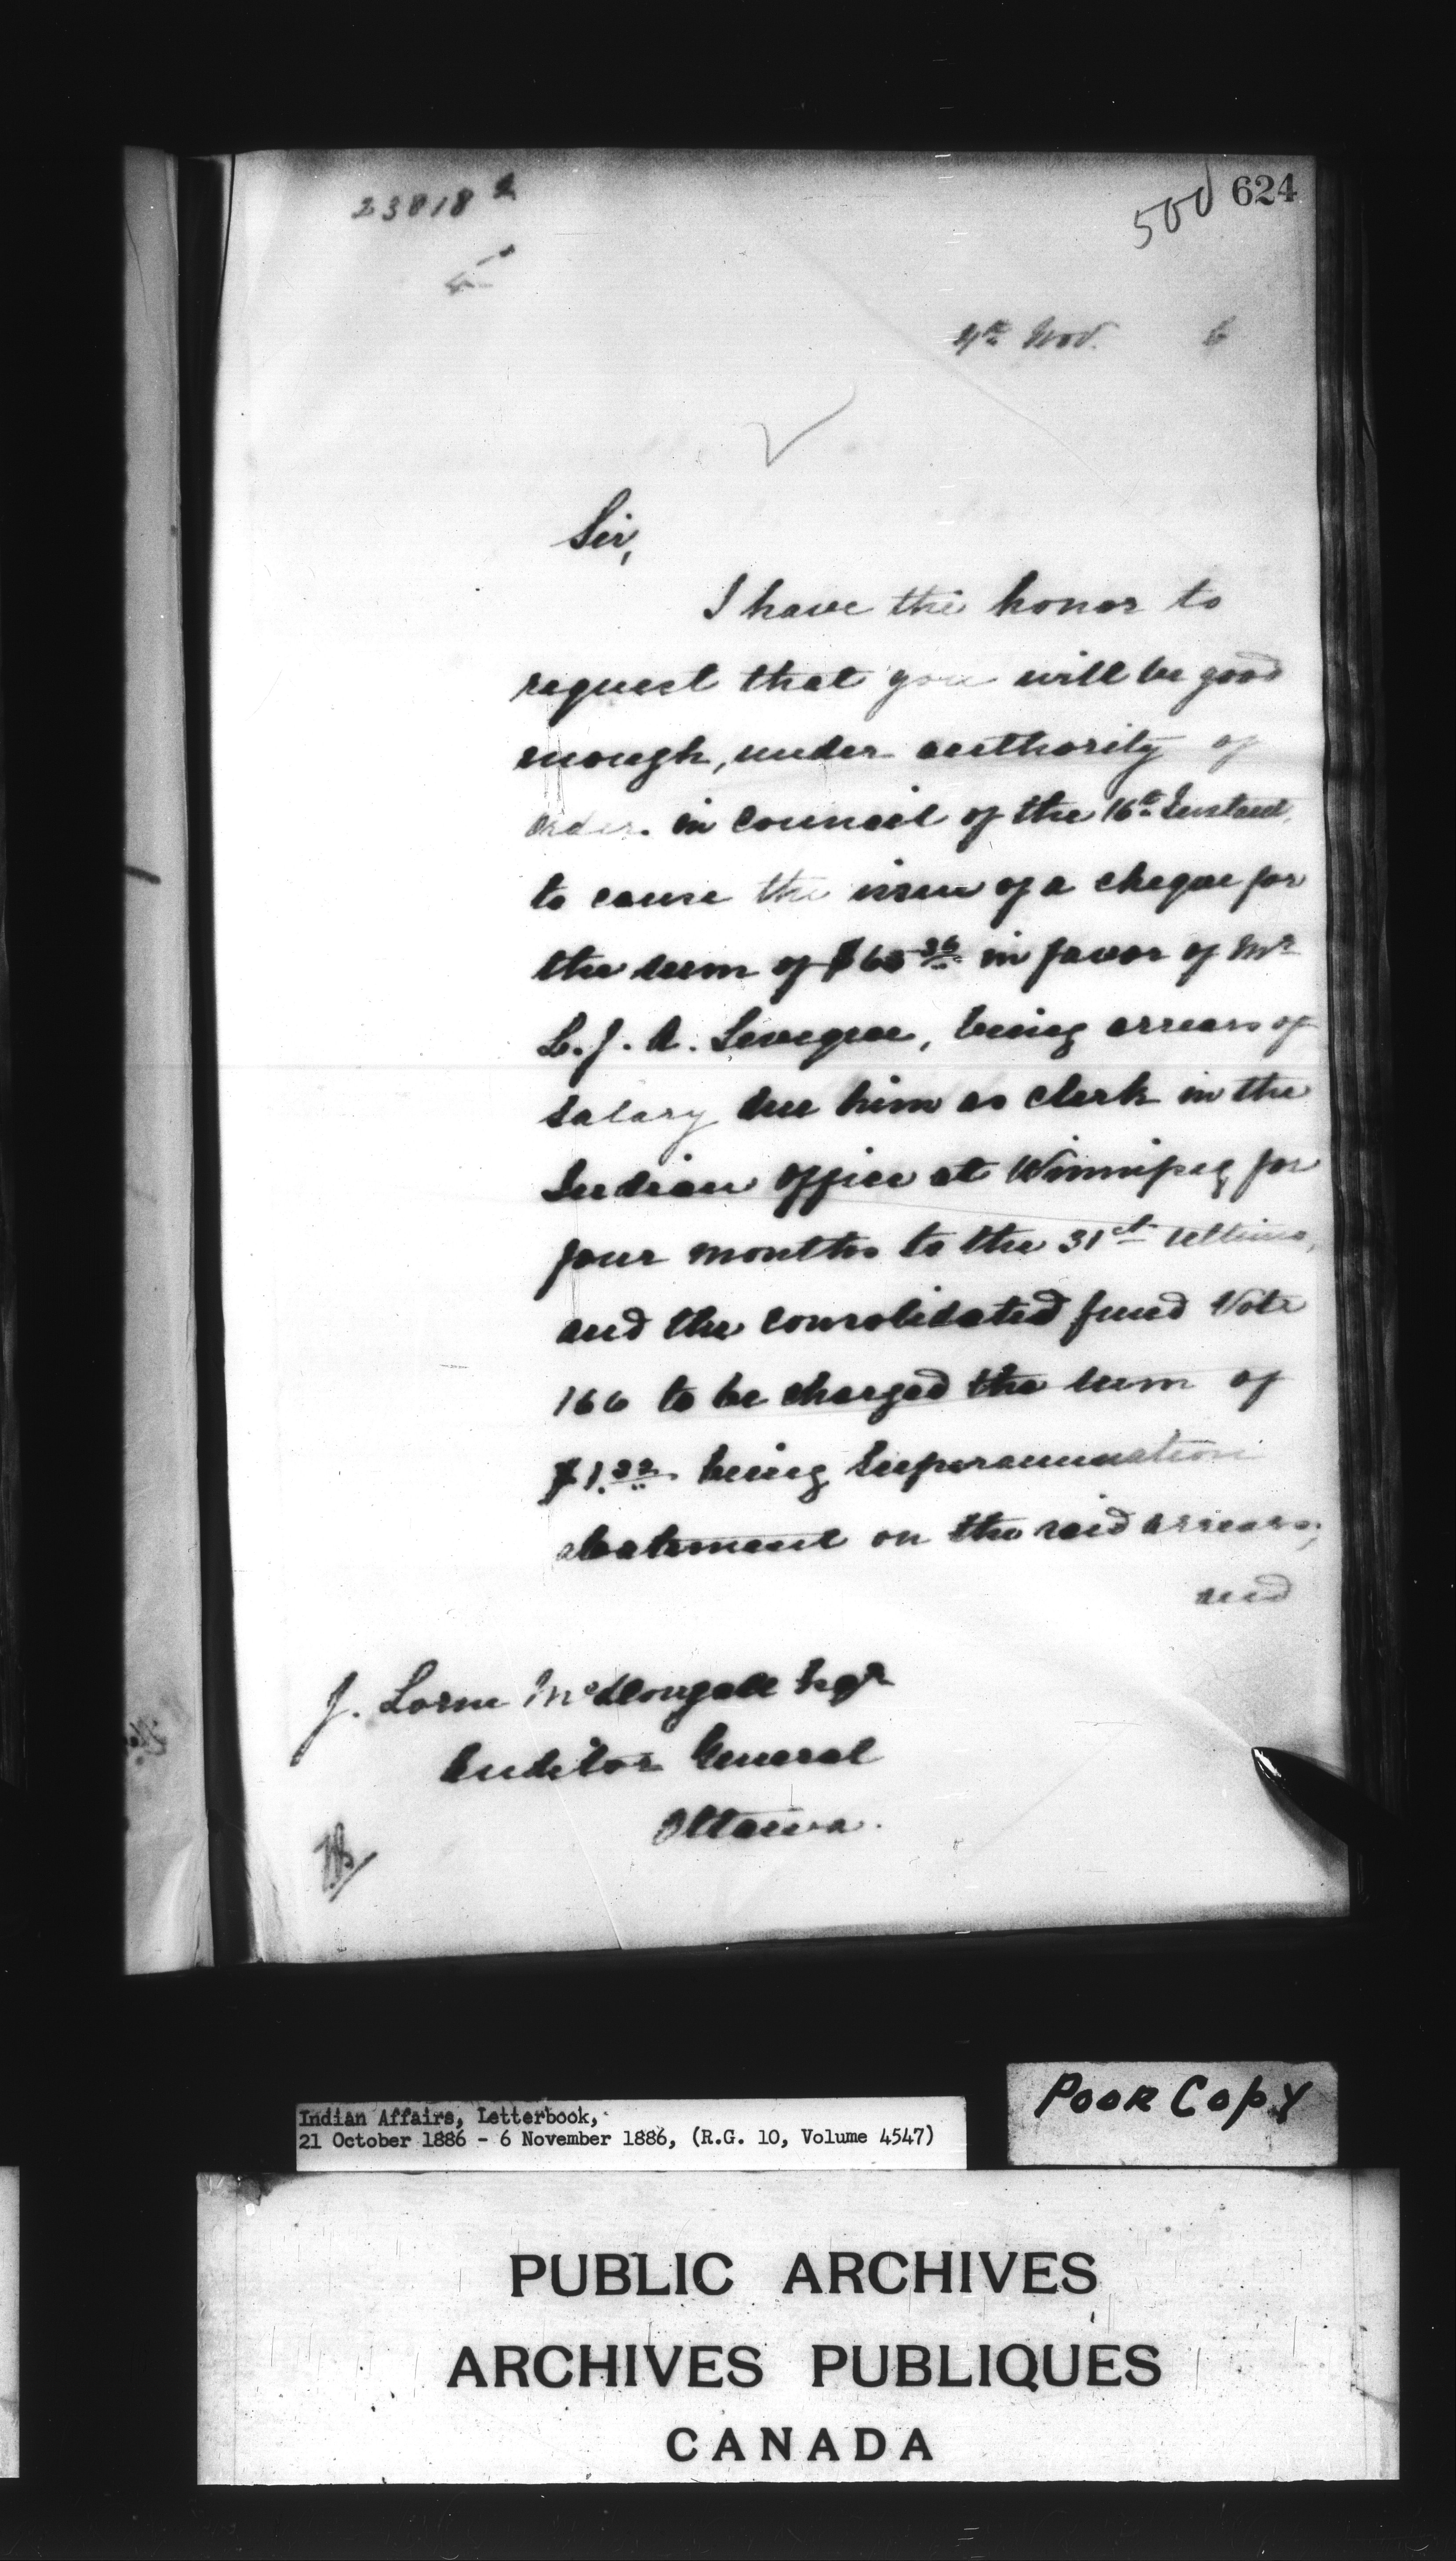 23818
500 624
4th Nov. 6
Sir,
I have the honor to
request that you will be good
enough, under authority of
order in Council of the 16th Instant,
to cause the issue of a cheque for
the sum of $65 36 in favor of Mr
L. J. A. Leveque, being arrears of
salary due him as clerk in the
Indian Office at Winnipeg for
four months to the 31st Ultimo,
and the Consolidated fund Vote
166 to be charged the sum of
$1.32 being Superannuation
abatement on the said arrears;
and
J. Lorne McDougall Esqr
Auditor General
Ottawa.
Poor Copy
Indian Affairs, Letterbook,
21 October 1886 - 6 November 1886, (R.G. 10, Volume 4547)
PUBLIC ARCHIVES
ARCHIVES PUBLIQUES
CANADA